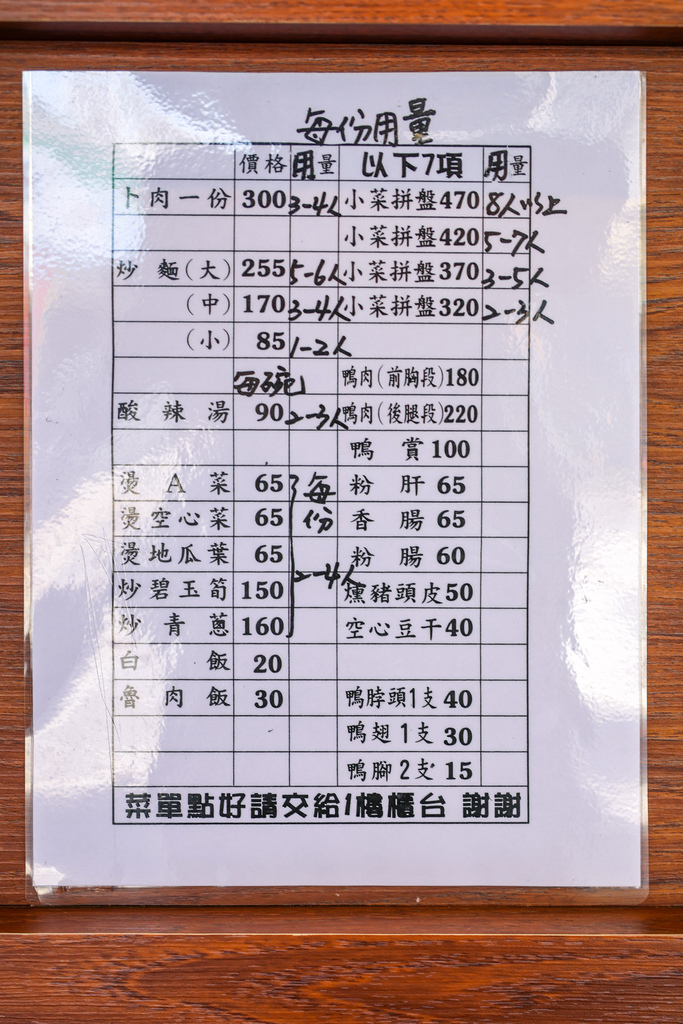 每份用量
價格 用量 以下7項 用量
卜肉一份 300 3-4人 小菜拼盤 470 8人以上
小菜拼盤 420 5-7人
炒麵(大) 255 5-6人 小菜拼盤 370 3-5人
(中) 170 3-4人 小菜拼盤 320 2-3人
(小) 85 1-2人
每碗 鴨肉(前胸段) 180
酸辣湯 90 2-3人 鴨肉(後腿段) 220
鴨賞 100
燙A菜 65 每 粉肝 65
燙空心菜 65 份 香腸 65
燙地瓜葉 65 粉腸 60
炒碧玉筍 150 2-4人 燻豬頭皮 50
炒青蔥 160 空心豆干 40
白飯 20
魯肉飯 30 鴨脖頭1支 40
鴨翅1支 30
鴨腳2支 15
菜單點好請交給1樓櫃台 謝謝